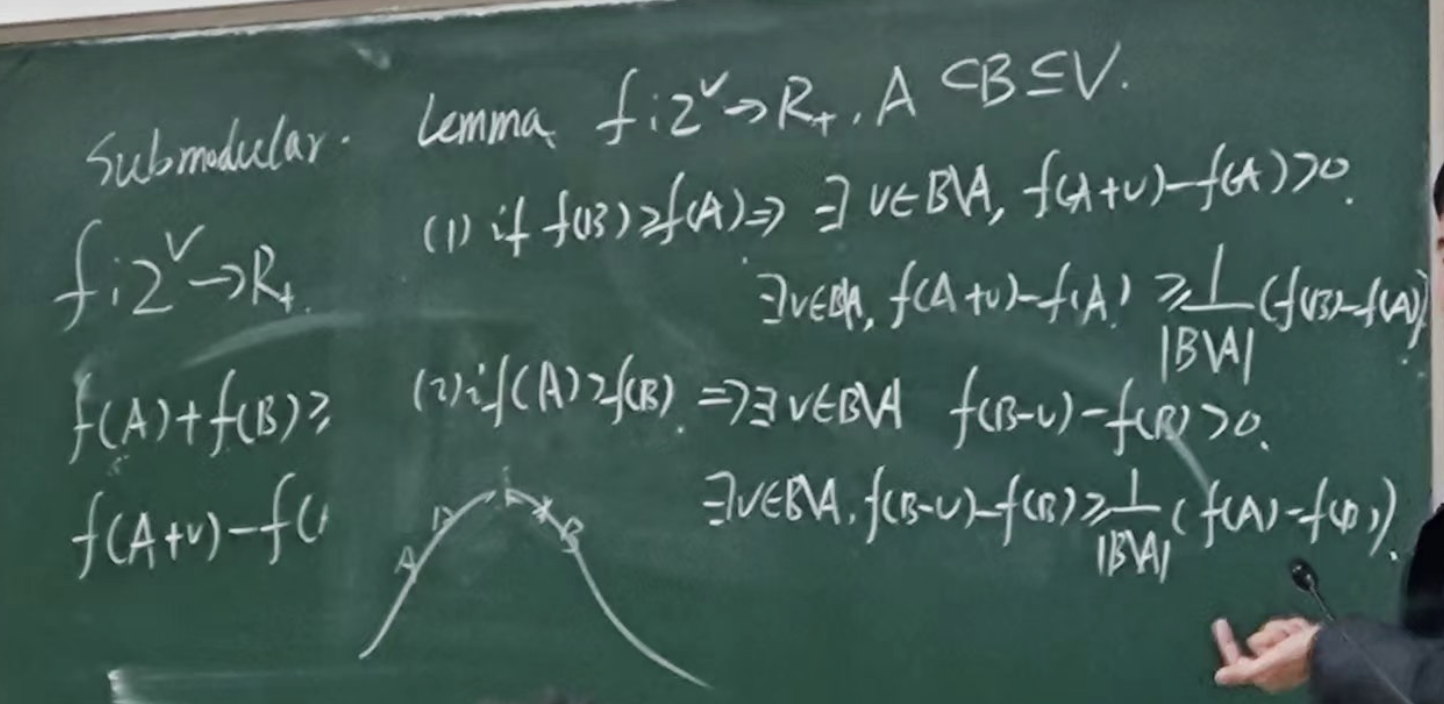 Submodular.
f:2^V→R₊.
f(A)+f(B)≥
f(A+v)-f(
Lemma f:2^V→R₊, A⊂B⊆V.
(1) if f(B)≥f(A)⇒ ∃ v∈B\A, f(A+v)-f(A)>0.
∃v∈B\A, f(A+v)-f(A) ≥ 1/|B\A| (f(B)-f(A))
(2) if f(A)≥f(B). ⇒∃ v∈B\A f(B-v)-f(B)>0.
∃v∈B\A, f(B-v)-f(B)≥ 1/|B\A| (f(A)-f(B)).
A B B